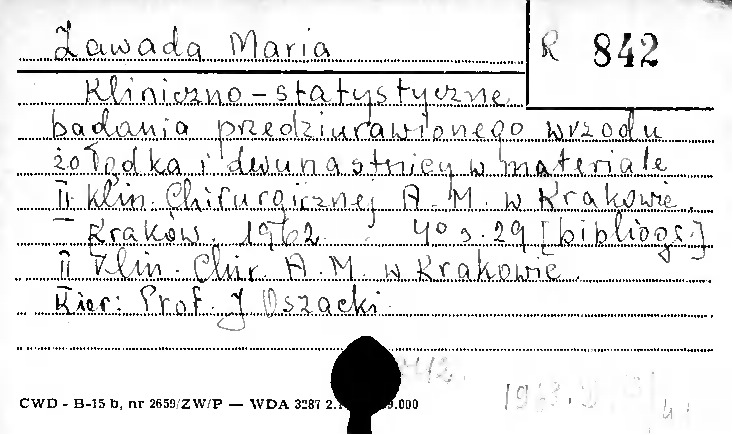 Zawada Maria
R 842
Kliniczno-statystyczne
badania przedziurawionego wrzodu
żołądka i dwunastnicy w materiale
II Klin. Chirurgicznej A.M. w Krakowie.
Kraków. 1962. 4° s. 29 [bibliogr.]
II Klin. Chir. A.M. w Krakowie.
Kier: Prof. J Oszacki
CWD - B-15 b, nr 2659/ZW/P — WDA 3287 2. 9.000